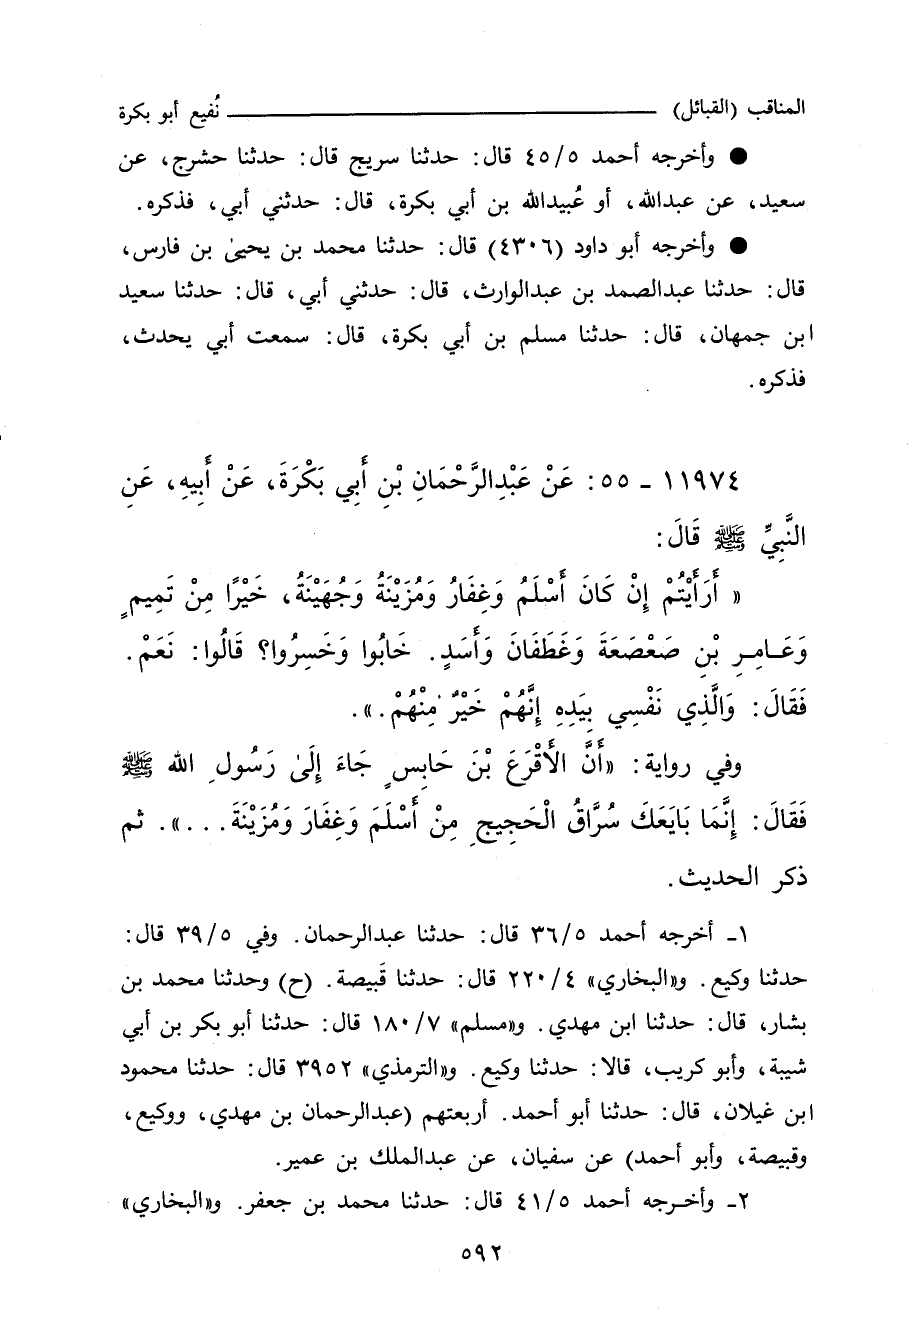 المناقب (القبائل) ـــــــــ نُفيع أبو بكرة
● وأخرجه أحمد ٤٥/٥ قال: حدثنا سريج قال: حدثنا حشرج، عن
سعيد، عن عبدالله، أو عُبيدالله بن أبي بكرة، قال: حدثني أبي، فذكره.
● وأخرجه أبو داود (٤٣٠٦) قال: حدثنا محمد بن يحيىٰ بن فارس،
قال: حدثنا عبدالصمد بن عبدالوارث، قال: حدثني أبي، قال: حدثنا سعيد
ابن جمهان، قال: حدثنا مسلم بن أبي بكرة، قال: سمعت أبي يحدث،
فذكره.
١١٩٧٤ ـ ٥٥: عَنْ عَبْدِالرَّحْمَانِ بْنِ أَبِي بَكْرَةَ، عَنْ أَبِيهِ، عَنِ
النَّبِيِّ ﷺ قَالَ:
« أَرَأَيْتُمْ إِنْ كَانَ أَسْلَمُ وَغِفَارُ وَمُزَيْنَةُ وَجُهَيْنَةُ، خَيْرًا مِنْ تَمِيمٍ
وَعَامِرِ بْنِ صَعْصَعَةَ وَغَطَفَانَ وَأَسَدٍ. خَابُوا وَخَسِرُوا؟ قَالُوا: نَعَمْ.
فَقَالَ: وَالَّذِي نَفْسِي بِيَدِهِ إِنَّهُمْ خَيْرٌ مِنْهُمْ.».
وفي رواية: «أَنَّ الأَقْرَعَ بْنَ حَابِسٍ جَاءَ إِلَىٰ رَسُولِ الله ﷺ
فَقَالَ: إِنَّمَا بَايَعَكَ سُرَّاقُ الْحَجِيجِ مِنْ أَسْلَمَ وَغِفَارَ وَمُزَيْنَةَ...». ثم
ذكر الحديث.
١ـ أخرجه أحمد ٣٦/٥ قال: حدثنا عبدالرحمان. وفي ٣٩/٥ قال:
حدثنا وكيع. و«البخاري» ٢٢٠/٤ قال: حدثنا قَبيصة. (ح) وحدثنا محمد بن
بشار، قال: حدثنا ابن مهدي. و«مسلم» ١٨٠/٧ قال: حدثنا أبو بكر بن أبي
شيبة، وأبو كريب، قالا: حدثنا وكيع. و«الترمذي» ٣٩٥٢ قال: حدثنا محمود
ابن غيلان، قال: حدثنا أبو أحمد. أربعتهم (عبدالرحمان بن مهدي، ووكيع،
وقبيصة، وأبو أحمد) عن سفيان، عن عبدالملك بن عمير.
٢ـ وأخرجه أحمد ٤١/٥ قال: حدثنا محمد بن جعفر. و«البخاري»
٥٩٢